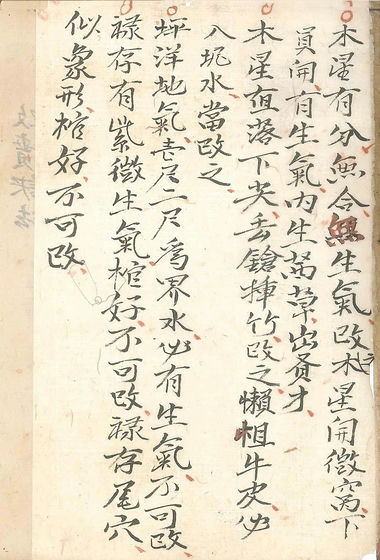 木星有分無合無生氣改之木星開微窩下
員開有生氣内生萬草出賢才
木星直落下尖丢鎗揷竹改之懶柤牛皮必
入坭水當改之
坪洋地氣壱尺二尺爲界水必有生氣不可改
禄存有紫微生氣棺好不可改禄存尾穴
似象形棺好不可改